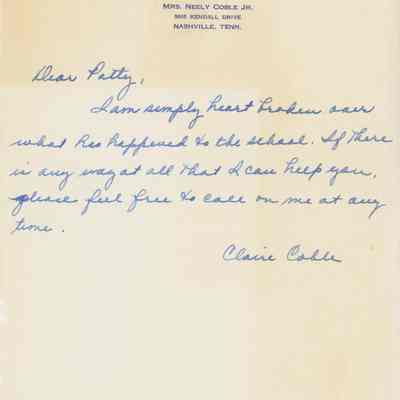 MRS. NEELY COBLE JR.
KENDALL DRIVE
NASHVILLE, TENN.
Dear Patty,
I am simply heart broken over
what has happened to the school. If there
is any way at all that I can help you,
please feel free to call on me at any
time.
Claire Coble